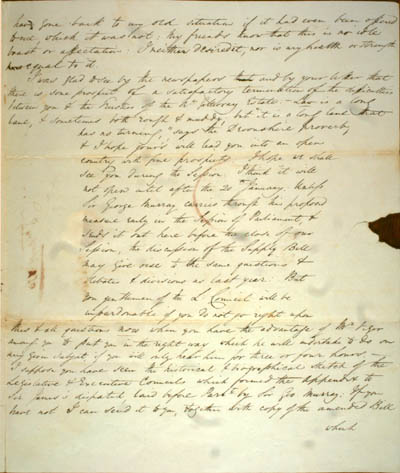 have gone back to my old situation if it had even been offered
to me, which it was not; my friends know that this is no idle
boast or affectation: I neither desired it, nor is my health or strength
equal to it.
I was glad to see by the newspapers and by your letter that
there is some prospect of a satisfactory termination of the difficulties
between you & the Trustees of the Estate. - Law is a long
lane, & sometimes both rough & muddy but "it is a long lane that
has no turning," says the Devonshire proverb
& I hope yours will lead you into an open
country with fine prospects. I hope we shall
see you during the Session. I think it will
not open until after the 20th January. Unless
Sir George Murray carries through his proposed
measure early in the Session of Parliament, &
sends it out here before the close of our
Session, the discussion of the Supply Bill
may give rise to the same questions &
debates & divisions as last year. But
you gentlemen of the L. Council will be
unpardonable if you do not go right upon
this & all questions now when you have the advantage of Mr
among you to put you in the right way which he will undertake to do on
any given subject if you will only hear him for three or four hours. -
I suppose you have seen the historical & biographical sketch of the
Legislative & Executive Councils which formed the Appendix to
Sir James's dispatch laid before Parlt. by Sir Geo. Murray. If you
have not I can send it to you, together with copy of the amended Bill
which